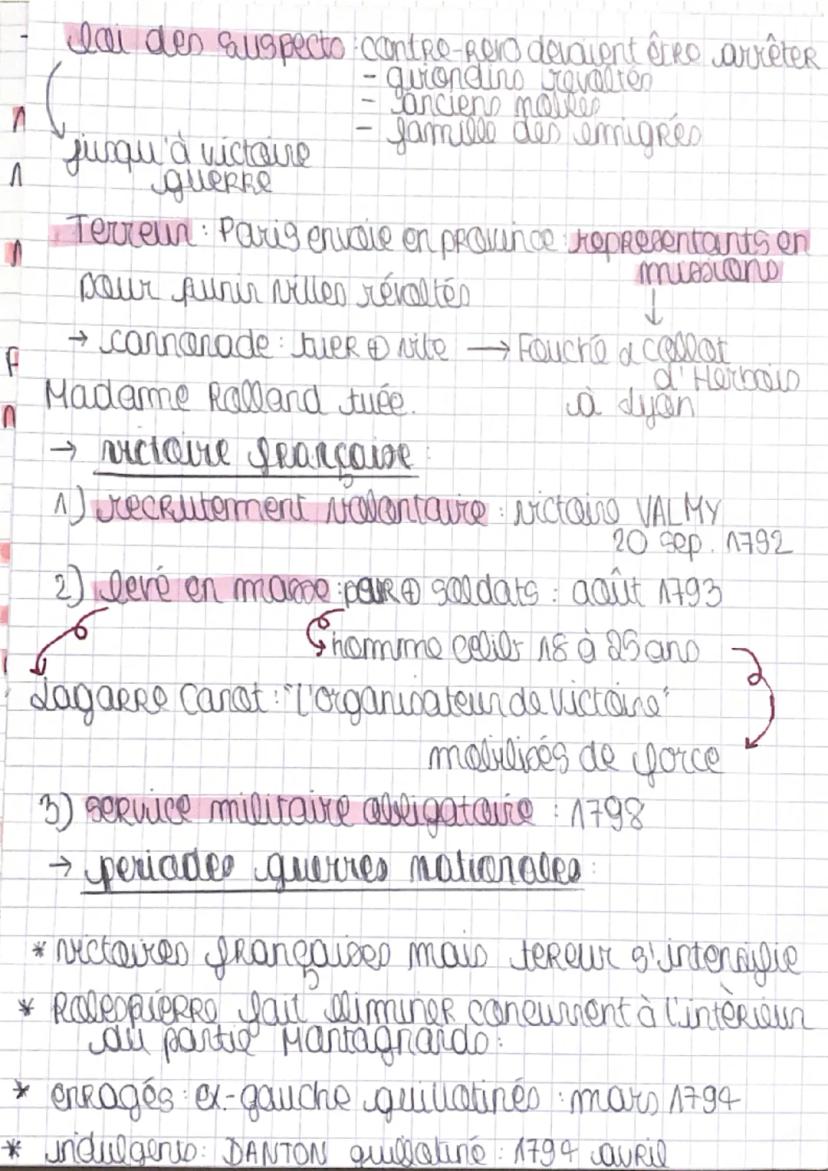 - Loi des suspects : contre-revo devaient être arrêter
- girondins révoltés
- anciens nobles
- famille des émigrés
jusqu'à victoire
guerre
Terreur : Paris envoie en province representants en
missions
pour punir villes révoltés
→ cannonade : tuer ⊕ vite → Fouché & Collot
d'Herbois
Madame Rolland tuée. à Lyon
→ victoire française :
1) recrutement volontaire : victoire VALMY
20 sep. 1792
2) levé en masse : pour ⊕ soldats : août 1793
homme celib 18 à 25 ans
Lagarre Canot : "l'organisateur de victoire"
mobilisés de force
3) service militaire obligatoire : 1798
→ periodes guerres nationales :
* victoires françaises mais tereur s'intensifie
* Robespierre fait éliminer concurrent à l'intérieur
du partie Montagnards :
* enragés : ex-gauche guillotinés : mars 1794
* indulgents : DANTON guillotiné : 1794 avril